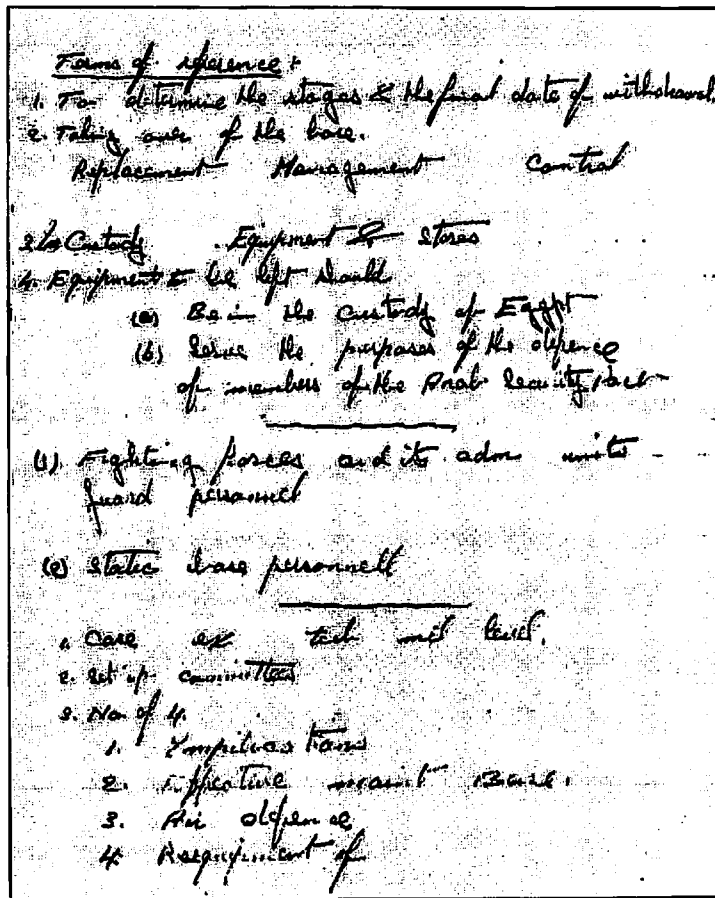 Terms of reference:
1. To determine the stages & the final date of withdrawal.
2. Taking over of the base.
Replacement Management Control
3. Custody Equipment & Stores
4. Equipment to be left should
(a) Be in the custody of Egypt
(b) Serve the purposes of the defence
of members of the Arab Security Pact
(1) Fighting forces and its adm units
guard personnel
(2) Static base personnell
1. Case ex tech mil level.
2. Set up committees
3. No. of 4.
1. Implications
2. Effective maint Base.
3. Air defence
4. Reequipment of